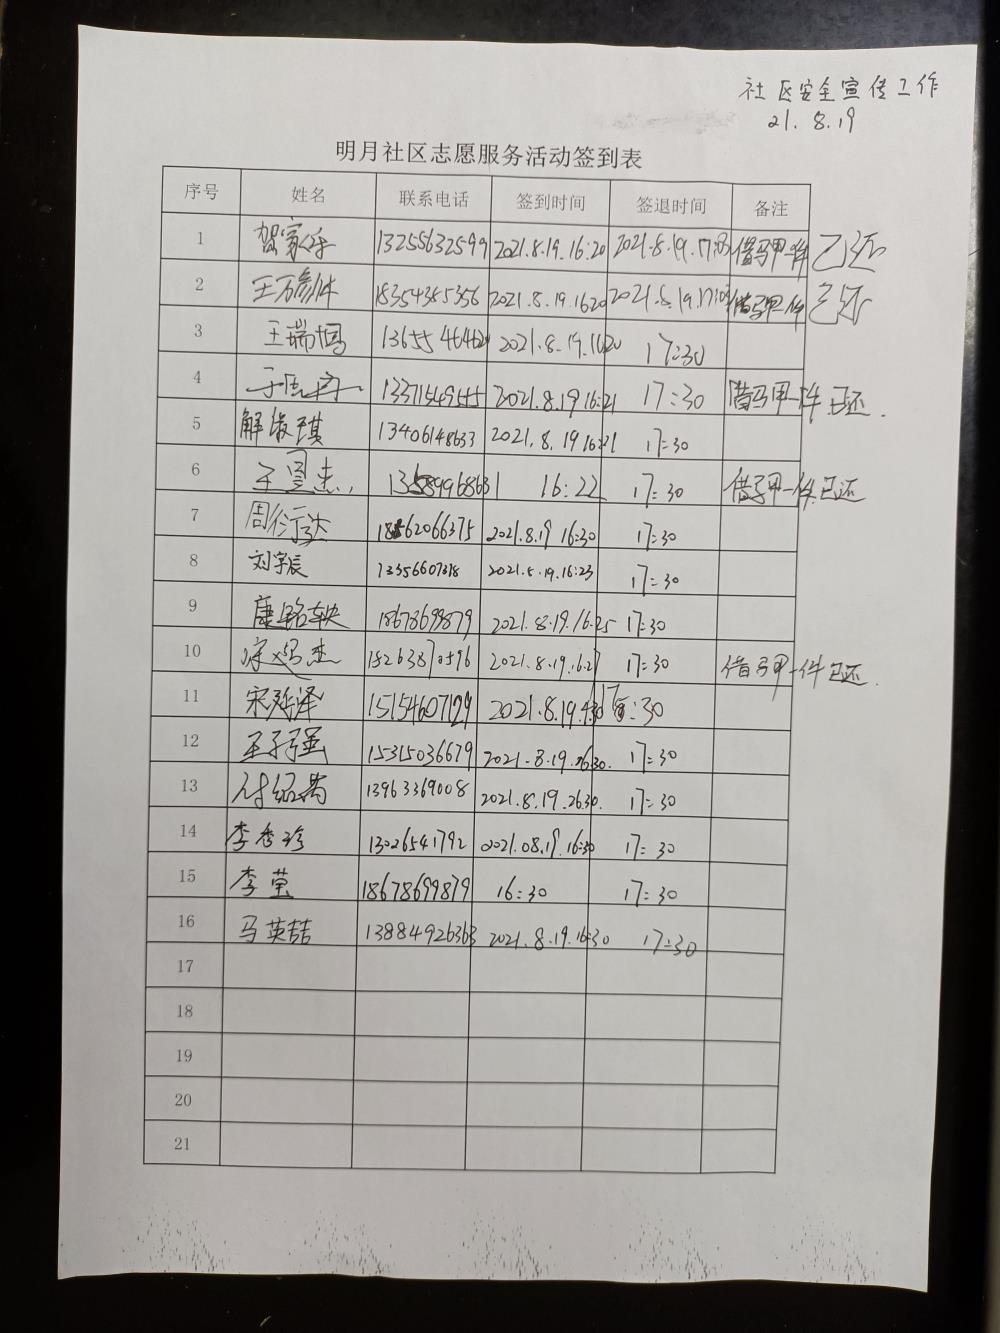 社区安全宣传工作
21.8.19
明月社区志愿服务活动签到表
序号 姓名 联系电话 签到时间 签退时间 备注
1 贺家乐 13255632599 2021.8.19.16:20 2021.8.19.17:03 借马甲一件 已还
2 王万彪 18354385356 2021.8.19.1620 2021.8.19.17:03 借马甲一件 已还
3 王瑞 13655464620 2021.8.19.1620 17:30
4 13371549555 2021.8.19 16:21 17:30 借马甲一件 已还.
5 解淑琪 13406148633 2021.8.19 16:21 17:30
6 杰 13589968631 16:22 17:30 借马甲一件 已还
7 周衍达 18562066375 2021.8.19 16:30 17:30
8 刘宇辰 13356607318 2021.8.19.16:23 17:30
9 康路轶 18678699879 2021.8.19.16:25 17:30
10 杰 15263870596 2021.8.19.16:27 17:30 借马甲一件 已还.
11 宋延泽 15154607129 2021.8.19. 17:30
12 王子强 15315036679 2021.8.19.26.30. 17:30
13 付绍 13963369008 2021.8.19.26.30. 17:30
14 李秀珍 13026541792 2021.08.19.16:30 17:30
15 李莹 18678699879 16:30 17:30
16 马英喆 13884926363 2021.8.19.16:30 17:30
17
18
19
20
21